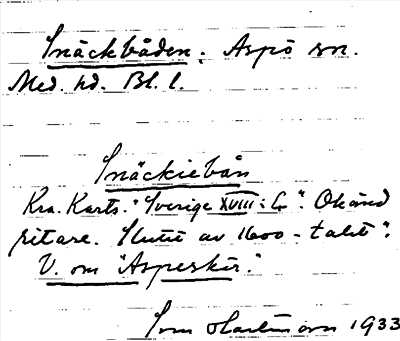 Snäckbåden: Aspö sn.
Med. hd. Bl. l.
Snäckiebån
Kra. Kartv. "Sverige XVIII: G". Okänd
ritare. Slutet av 1600-talet".
V. om "Asperskär."
Sven Hartman 1933